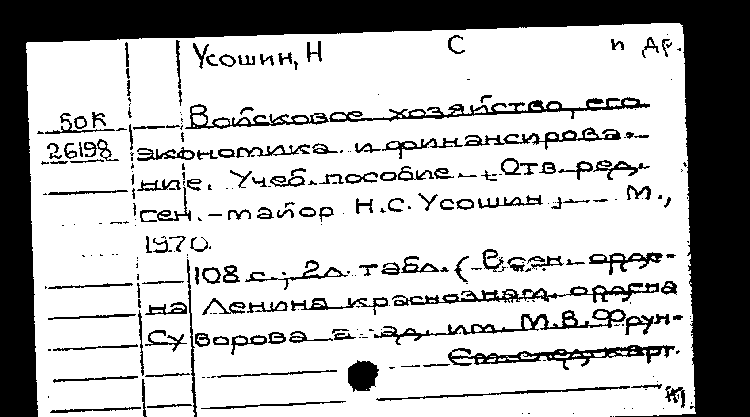 Усошин, Н С и др.
50К Войсковое хозяйство, его
26198 экономика и финансирова-
ние. Учеб. пособие. Отв. ред.
ген.-майор Н.С. Усошин М.,
1970.
108 с.; 2л. табл. (Воен. орде-
на Ленина краснознам. ордена
Суворова акад. им. М.В. Фрун-
См. след. карт.